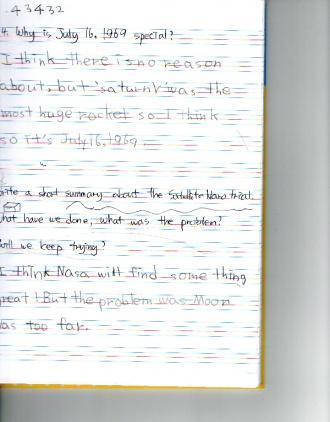 .43432
4. Why is July 16, 1969 special?
I think there is no reason
about, but saturn V was the
most huge rocket so I think
so it's July 16, 1969
rite a short summary about the Satellite Nasa tried.
hat have we done, what was the problem?
will we keep trying?
I think Nasa will find some thing
reat! But the problem was Moon
as too far.